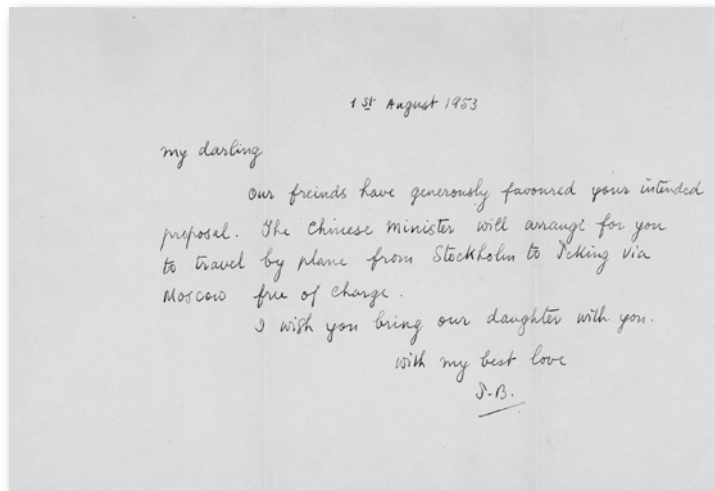 1st August 1953
my darling
our freinds have generously favoured your intended
proposal. The Chinese Minister will arrange for you
to travel by plane from Stockholm to Peking via
Moscow free of charge.
I wish you bring our daughter with you.
with my best love
P.B.